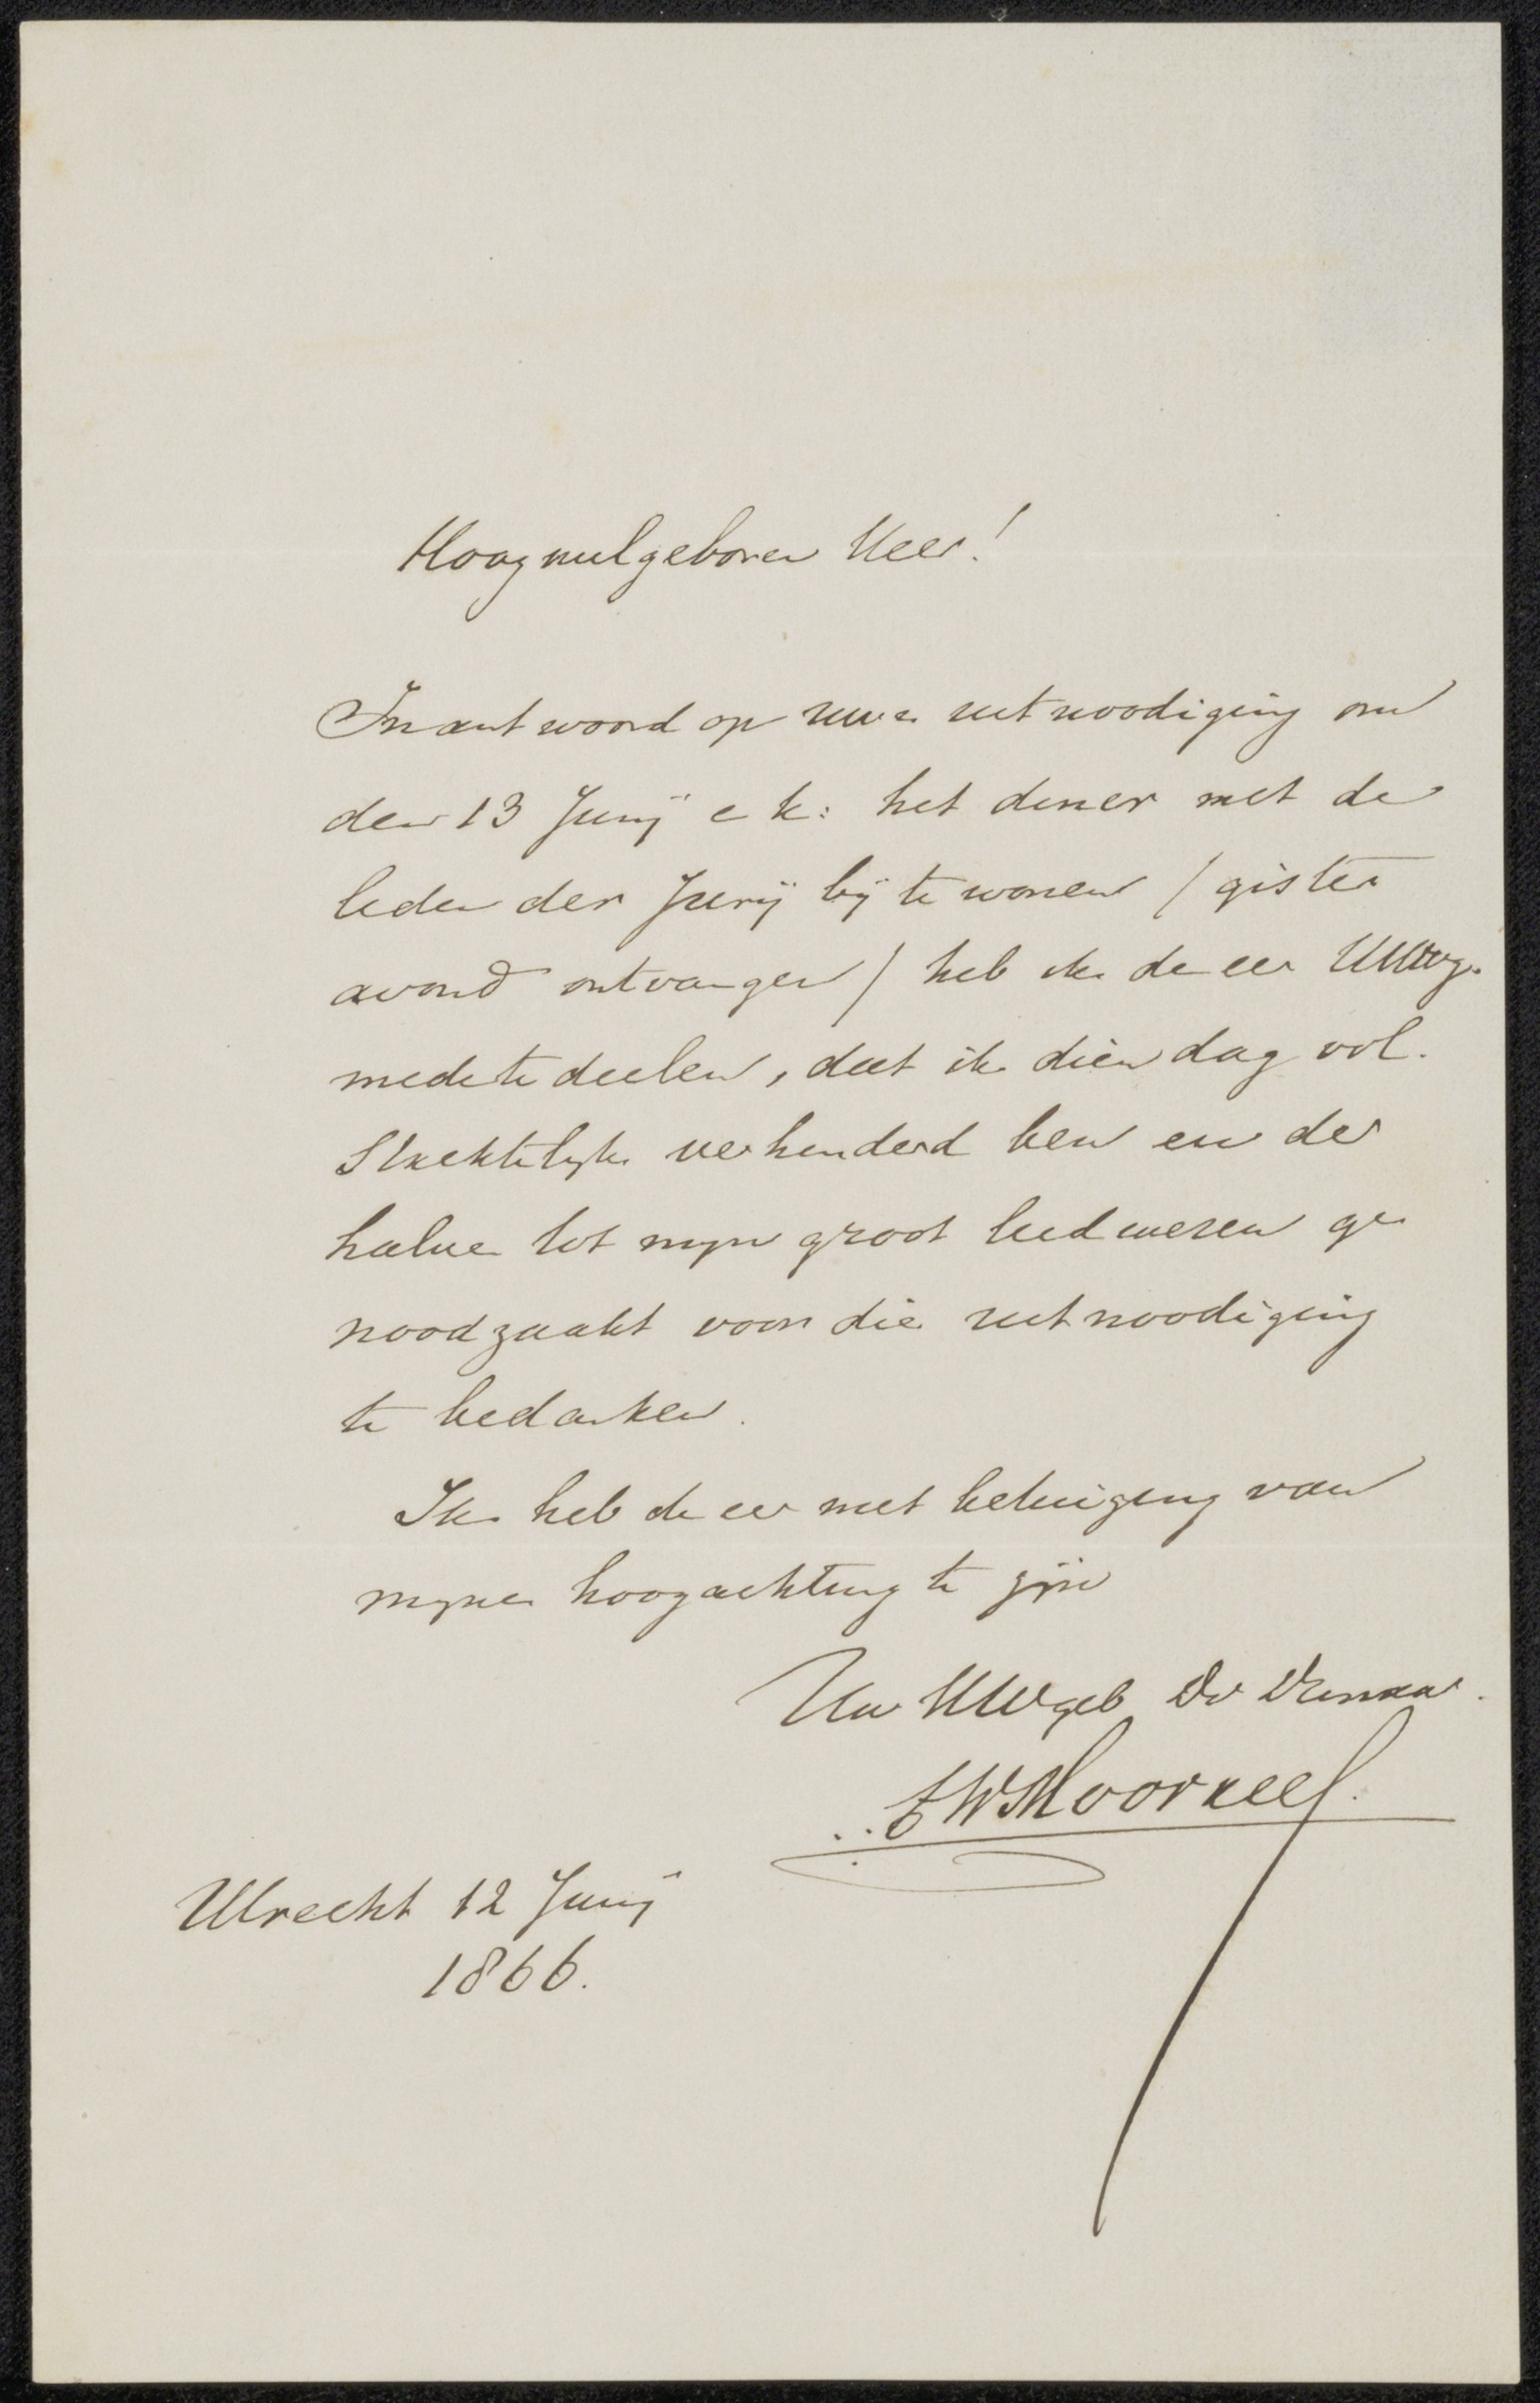 Hoogwelgeboren Heer!
In antwoord op uwe uitnoodiging om
den 13 Junij e k: het diner met de
leden der Jurij bij te wonen / gister
avond ontvangen / heb ik de eer UHWg.
mede te deelen, dat ik dien dag vol.
strektelijk verhinderd ben en der
halve tot mijn groot leedwezen ge
noodzaakt voor die uitnoodiging
te bedanken.
Ik heb de eer met betuiging van
mijne hoogachting te zijn
Uw HWgeb Dv Dienaar.
Utrecht 12 Junij
1866.